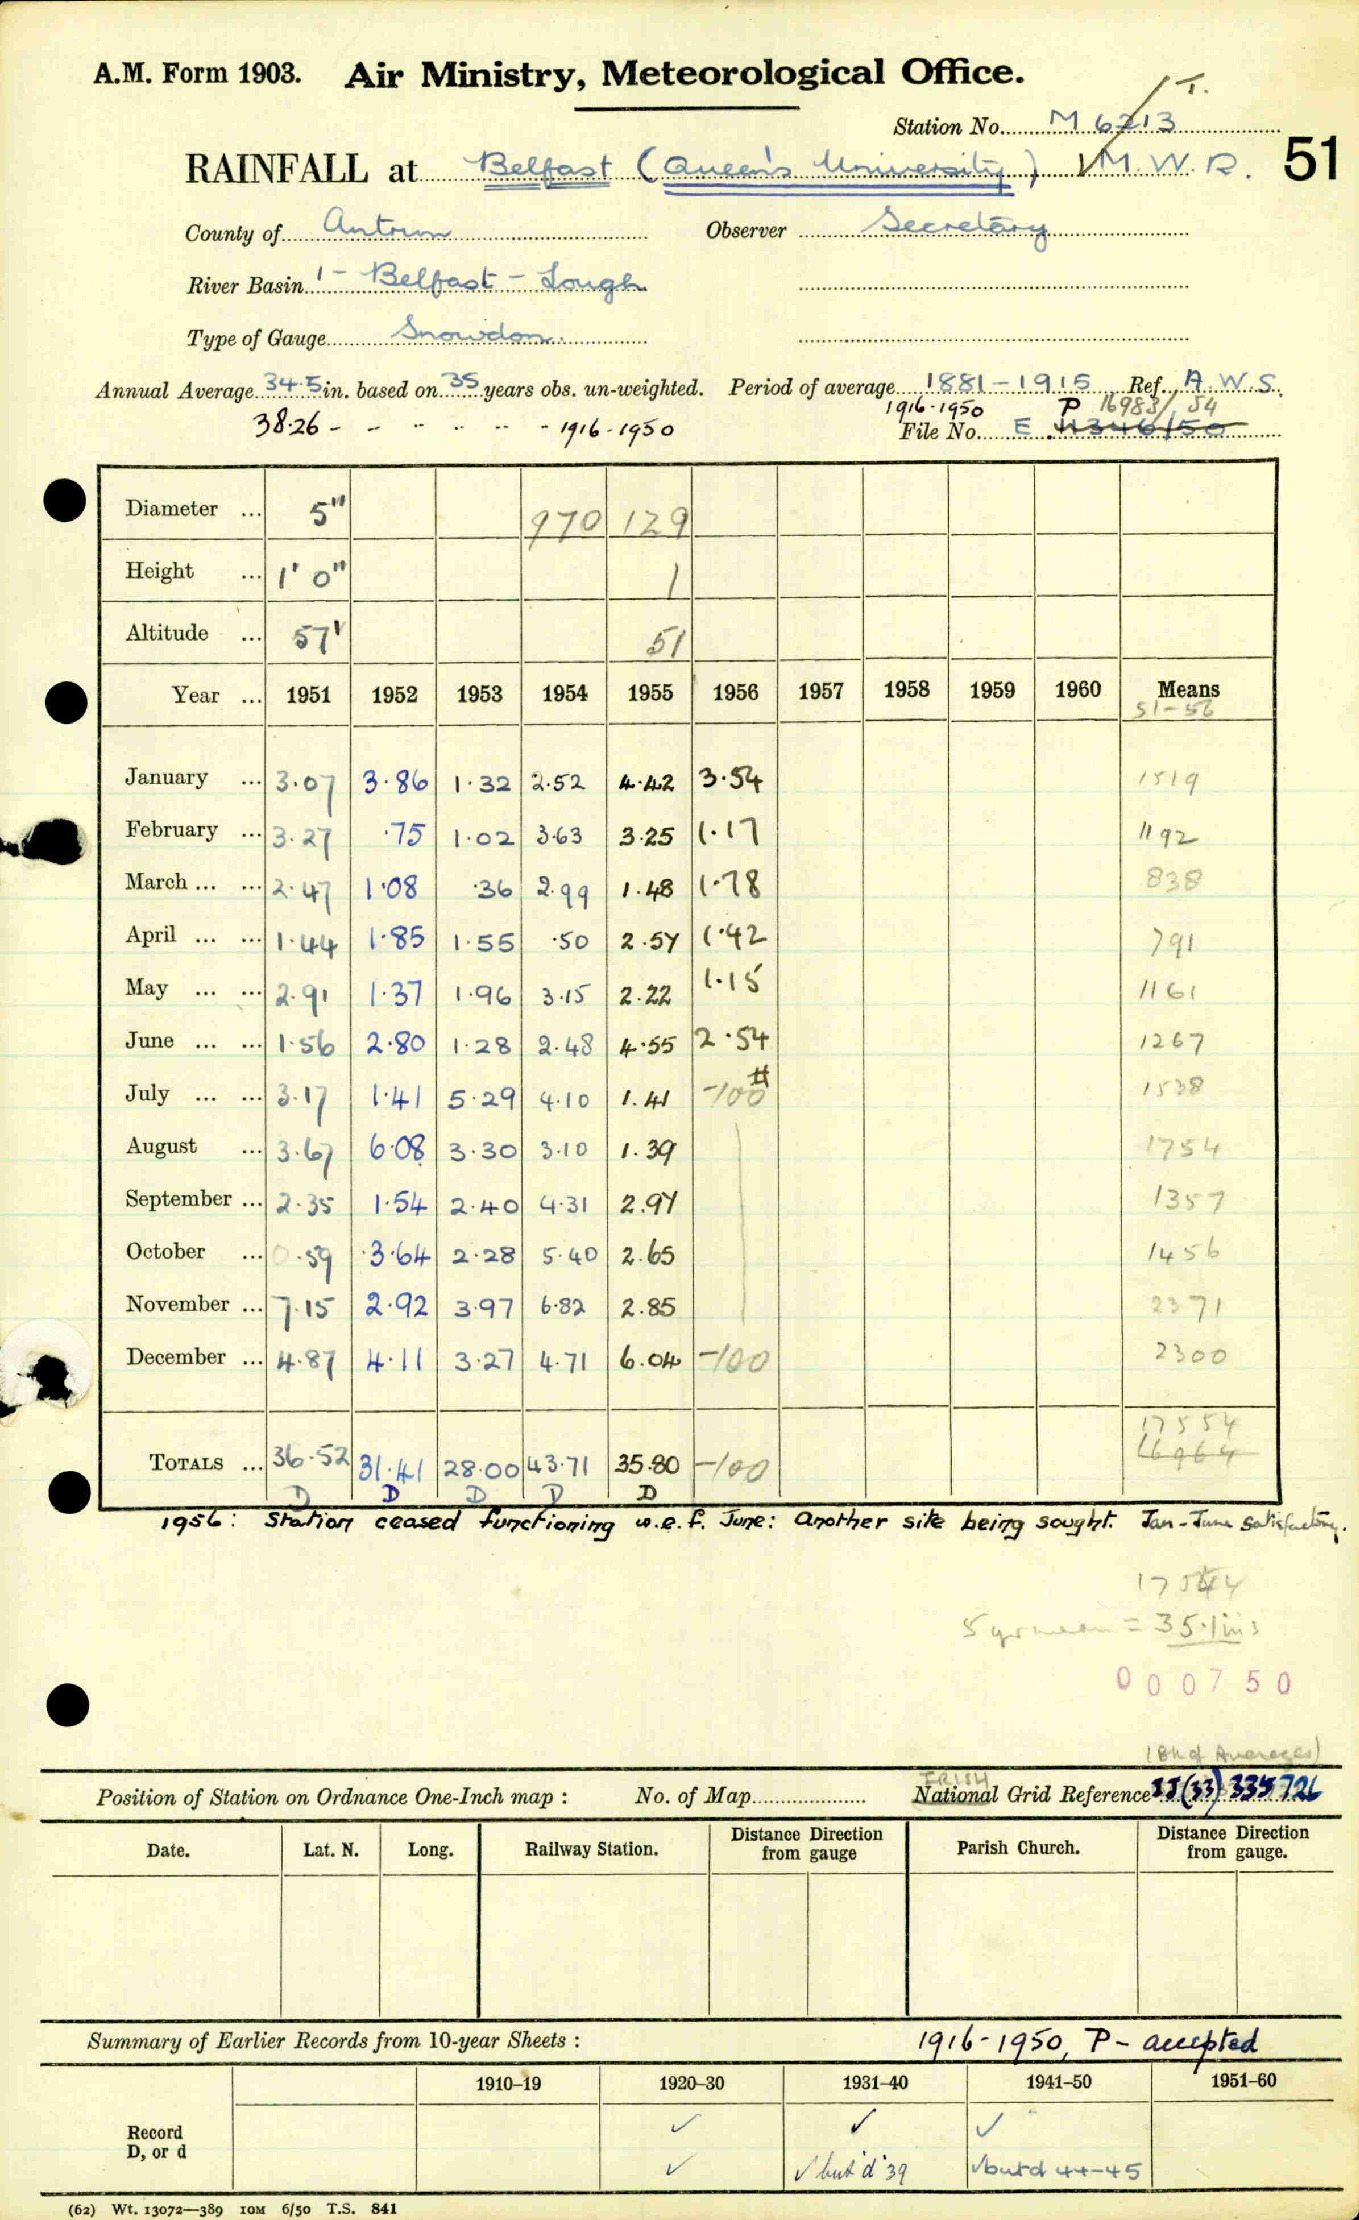 A.M. Form 1903. Air Ministry, Meteorological Office.
T.
Station No. M 6213
RAINFALL at Belfast (Queen's University) M.W.R. 51
County of Antrim Observer Secretary
River Basin 1 - Belfast - Lough
Type of Gauge Snowdon
Annual Average 34.5 in. based on 35 years obs. un-weighted. Period of average 1881-1915 Ref. A.W.S.
38.26 - - " " " - 1916-1950 1916-1950 P 16983/54
File No. E 11346/50
Diameter ... 5" 970 129
Height ... 1' 0" 1
Altitude ... 57' 51
Year ... 1951 1952 1953 1954 1955 1956 1957 1958 1959 1960 Means
51-56
January ... 3.07 3.86 1.32 2.52 4.42 3.54 1519
February ... 3.27 .75 1.02 3.63 3.25 1.17 1192
March ... ... 2.47 1.08 .36 2.99 1.48 1.78 838
April ... ... 1.44 1.85 1.55 .50 2.57 1.42 791
May ... ... 2.91 1.37 1.96 3.15 2.22 1.15 1161
June ... ... 1.56 2.80 1.28 2.48 4.55 2.54 1267
July ... ... 3.17 1.41 5.29 4.10 1.41 -100 # 1538
August ... 3.67 6.08 3.30 3.10 1.39 1754
September ... 2.35 1.54 2.40 4.31 2.97 1357
October ... 0.59 3.64 2.28 5.40 2.65 1456
November ... 7.15 2.92 3.97 6.82 2.85 2371
December ... 4.87 4.11 3.27 4.71 6.04 -100 2300
17554
TOTALS ... 36.52 31.41 28.00 43.71 35.80 -100 16964
D D D D D
1956: Station ceased functioning w.e.f. June: Another site being sought. Jan-June satisfactory.
17544
5 yr mean = 35.1 ins
000750
(Bk of Averages)
Position of Station on Ordnance One-Inch map : No. of Map IRISH National Grid Reference IJ(33) 335 726
Date. Lat. N. Long. Railway Station. Distance Direction from gauge Parish Church. Distance Direction from gauge.
Summary of Earlier Records from 10-year Sheets : 1916-1950, P - accepted
1910–19 1920–30 1931–40 1941–50 1951–60
Record ✓ ✓ ✓
D, or d ✓ ✓ but 'd' 39 ✓ but d 44-45
(62) Wt. 13072—389 10M 6/50 T.S. 841